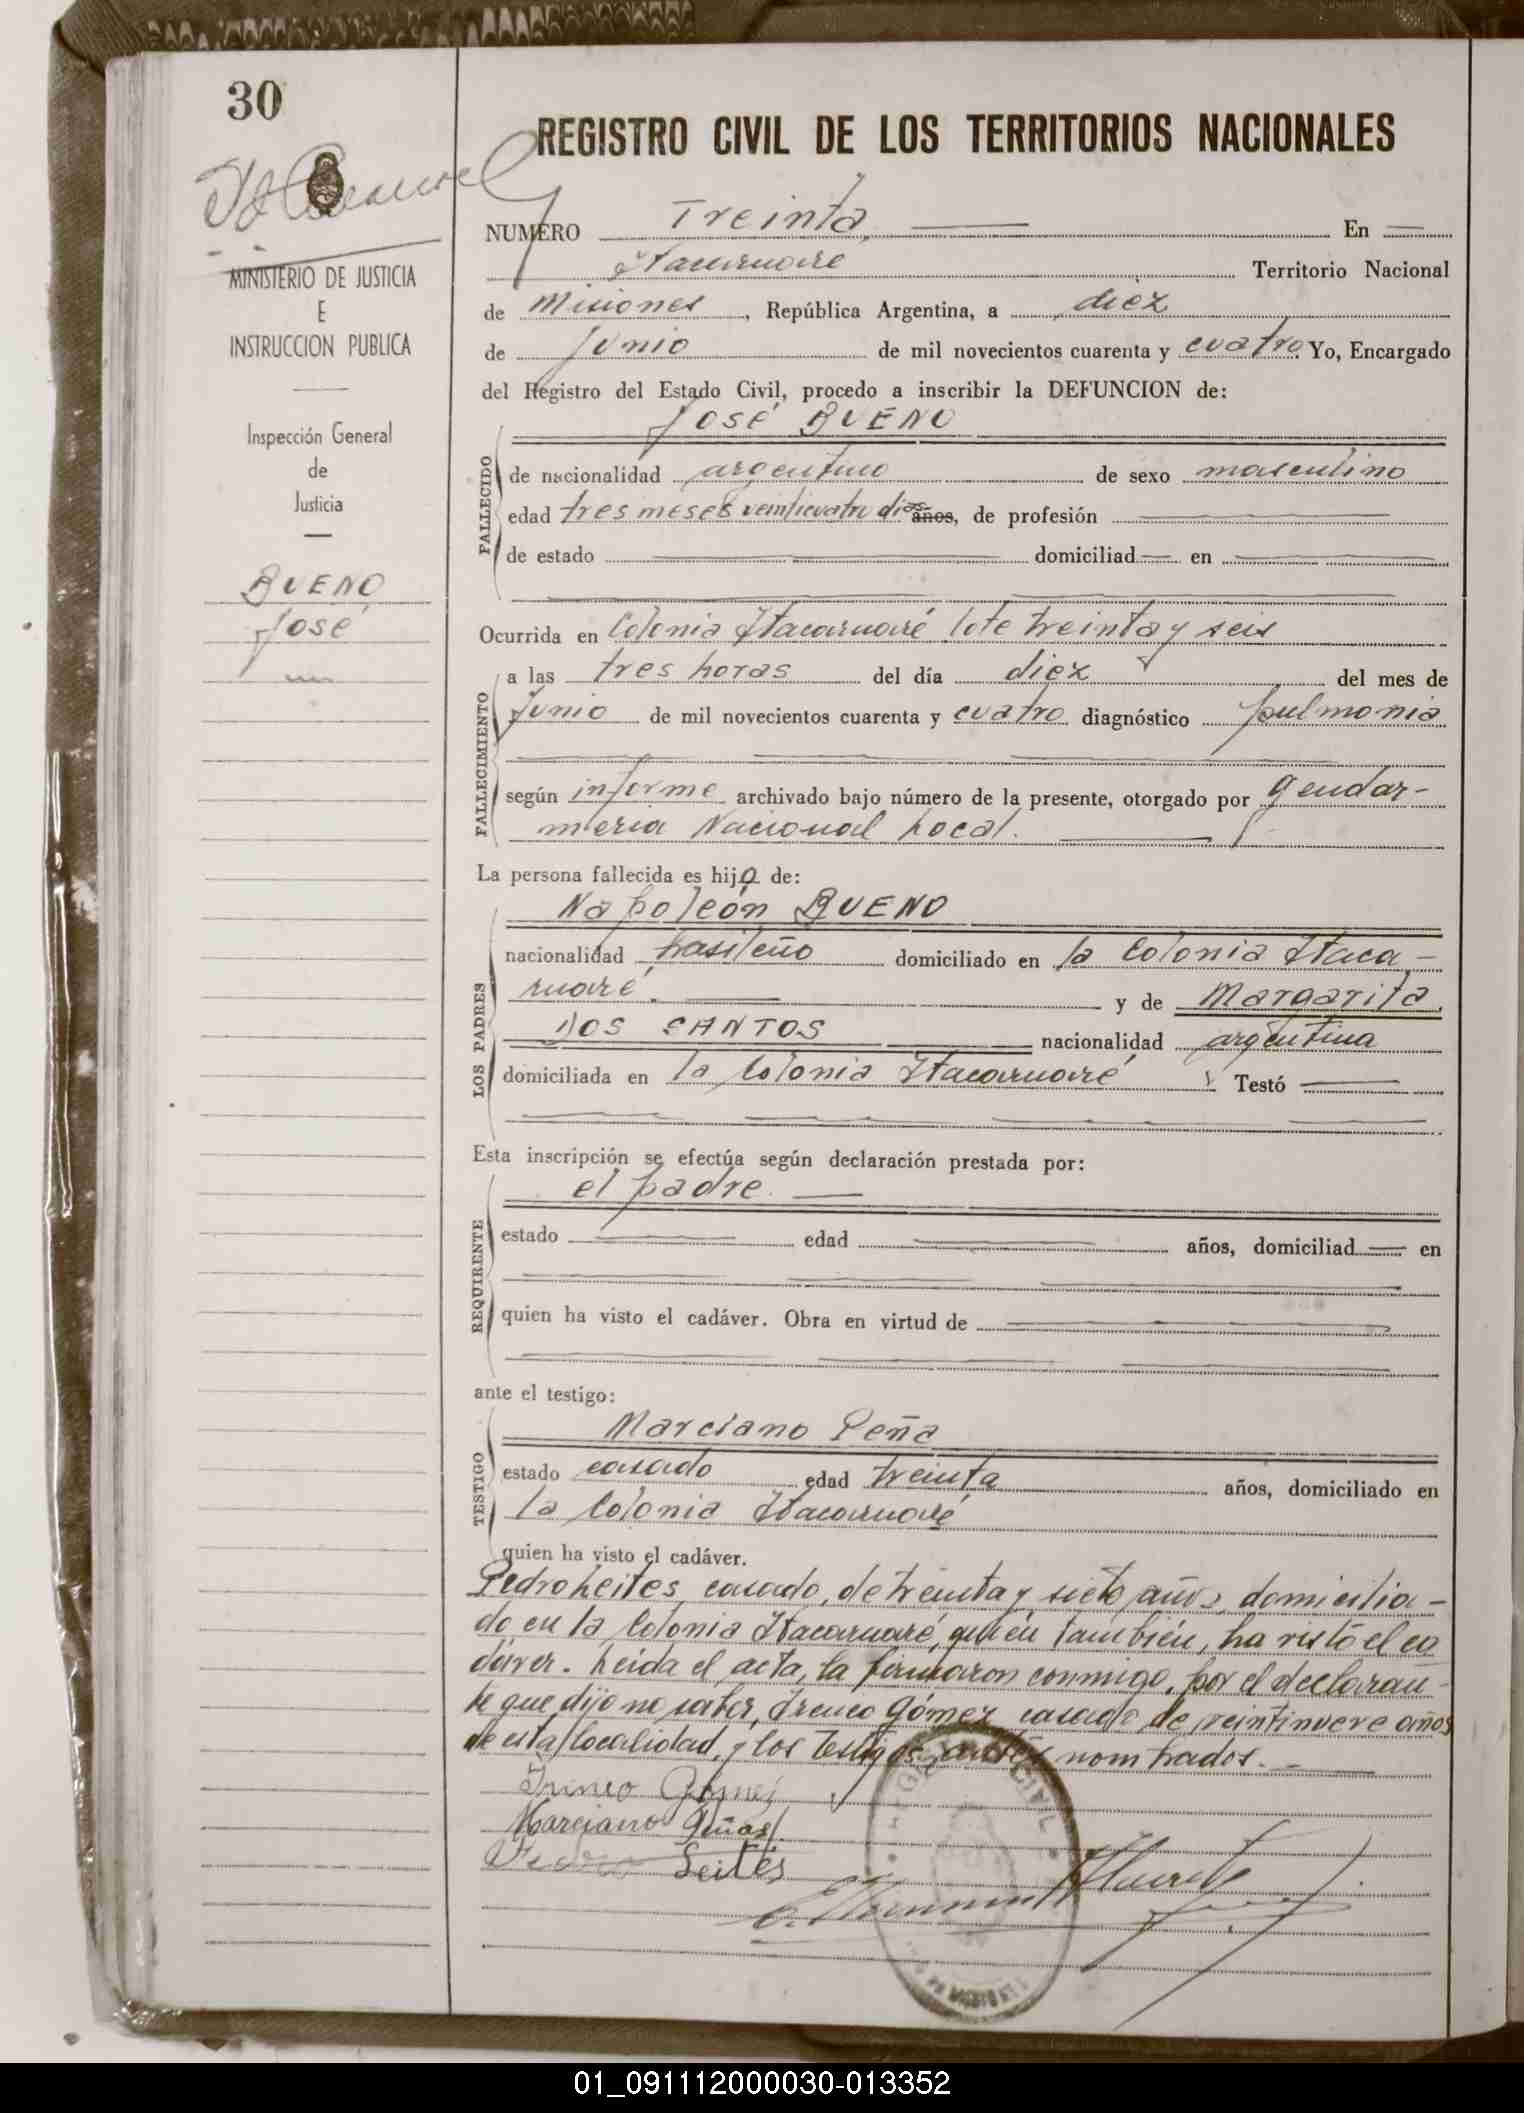 30
REGISTRO CIVIL DE LOS TERRITORIOS NACIONALES
NUMERO Treinta En
Itacaruaré Territorio Nacional
de Misiones, República Argentina, a diez
de Junio de mil novecientos cuarenta y cuatro. Yo, Encargado
del Registro del Estado Civil, procedo a inscribir la DEFUNCION de:
José BUENO
FALLECIDO
de nacionalidad argentino de sexo masculino
edad tres meses veinticuatro dias años, de profesión
de estado domiciliad en
MINISTERIO DE JUSTICIA
E
INSTRUCCION PUBLICA
Inspección General
de
Justicia
BUENO
José
Ocurrida en Colonia Itacaruaré lote treinta y seis
FALLECIMIENTO
a las tres horas del día diez del mes de
Junio de mil novecientos cuarenta y cuatro diagnóstico pulmonia
según informe archivado bajo número de la presente, otorgado por gendar-
meria Nacional Local.
La persona fallecida es hijo de:
LOS PADRES
Napoleón BUENO
nacionalidad brasileño domiciliado en la Colonia Itaca-
ruaré y de Margarita
DOS SANTOS nacionalidad argentina
domiciliada en la Colonia Itacaruaré Testó
Esta inscripción se efectúa según declaración prestada por:
REQUIRENTE
el padre.
estado edad años, domiciliad en
quien ha visto el cadáver. Obra en virtud de
ante el testigo:
TESTIGO
Marciano Peña
estado casado edad treinta años, domiciliado en
la Colonia Itacaruaré
quien ha visto el cadáver.
Pedro Leites, casado, de treinta y siete años, domicilia-
do en la Colonia Itacaruaré, quien también, ha visto el ca
dáver. Leida el acta, la firmaron conmigo, por el declaran-
te que dijo no saber, Ireneo Gómez, casado de veintinueve años
de esta localidad, y los testigos antes nombrados.
Ireneo Gómez
Marciano Peña
Pedro Leites
REGISTRO CIVIL
MISIONES
01_091112000030-013352